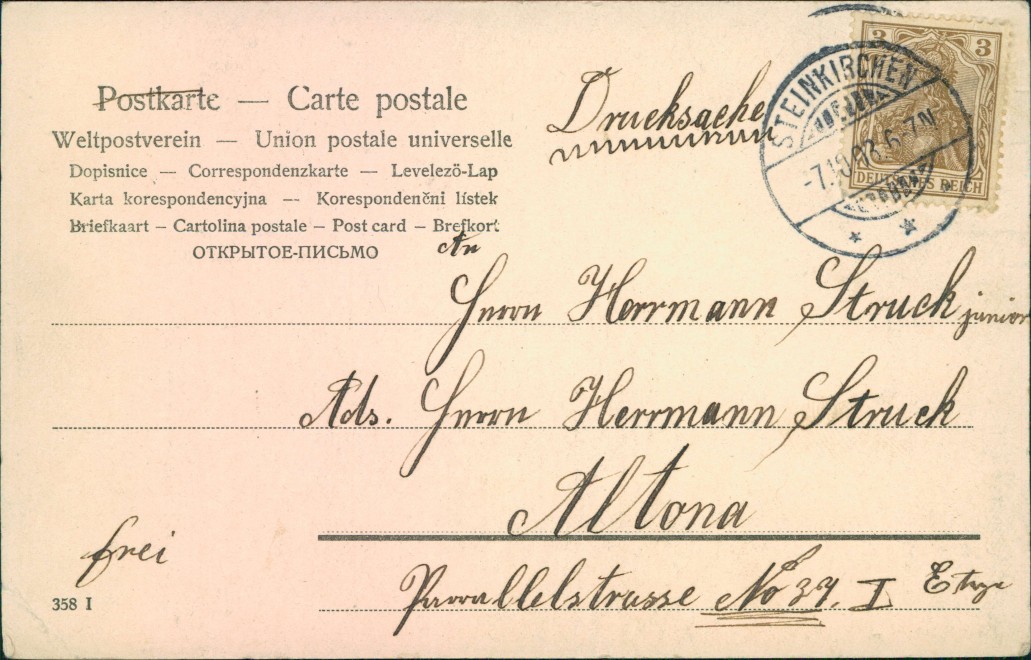 Postkarte — Carte postale
Weltpostverein — Union postale universelle
Dopisnice — Correspondenzkarte — Levelezö-Lap
Karta korespondencyjna — Korespondenčni lístek
Briefkaart – Cartolina postale – Post card – Brefkort
ОТКРЫТОЕ-ПИСЬМО
Drucksache
3 3
DEUTSCHES REICH
STEINKIRCHEN
An
Herrn Herrmann Struck junior
Ads. Herrn Herrmann Struck
Altona
frei
Parallelstrasse No 39. I Etage
358 I